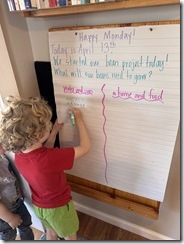 Happy Monday!
Today is April 13th
We started our bean project today!
What will our beans need to grow?
a home and food